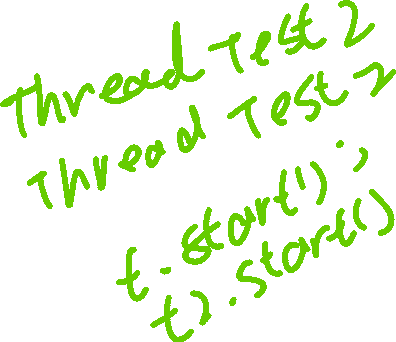 Thread Test 2
Thread Test 2
t.start();
t2.start()